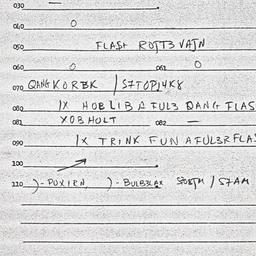 030 —
040 O
050 FLASH ROTT3 VAJN
060 O 061 O
070 QANG KORBK / S7TOPJ4K8
080 1X HOBLIBA FUL3 QANG FLAS
081 XOB HOLT 082 —
090 1X TRINK FUN AFUL3R FLA
100
110 )-POXIRN )-BULB3LAX / S7AM